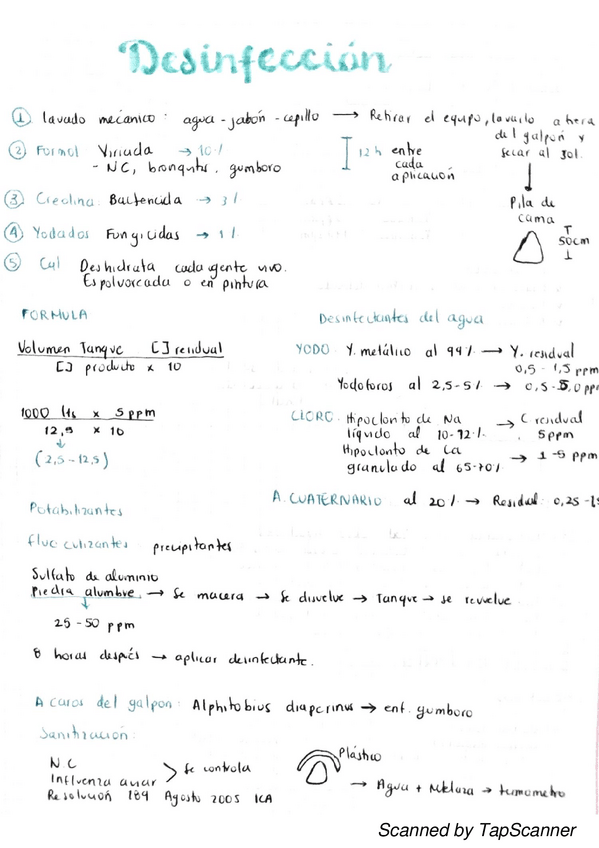 Desinfección
① lavado mecánico: agua - jabón - cepillo → Retirar el equipo, lavarlo afuera
del galpón y
secar al sol.
② Formol Viricida → 10%
- NC, bronquitis, gumboro
12 h entre
cada
aplicación
③ Creolina: Bactericida → 3%
④ Yodados Fungicidas → 1%
⑤ Cal Deshidrata cada agente vivo.
Espolvoreada o en pintura
Pila de
cama
50cm
FORMULA
Volumen Tanque [] residual
[] producto x 10
1000 lts x 5 ppm
12,5 x 10
(2,5 - 12,5)
Desinfectantes del agua
YODO: Y. metálico al 99% → Y. residual
0,5 - 1,5 ppm
Yodoforos al 2,5-5% → 0,5-5,0 pp
CLORO: Hipoclorito de Na → C residual
líquido al 10-12%. 5ppm
Hipoclorito de Ca → 1-5 ppm
granulado al 65-70%
A. CUATERNARIO al 20% → Residual 0,25 -
Potabilizantes
floculizantes precipitantes
Sulfato de aluminio
Piedra alumbre → Se macera → Se disuelve → Tanque → se revuelve
25 - 50 ppm
8 horas después → aplicar desinfectante.
Acaros del galpon: Alphitobius diaperinus → enf. gumboro
Sanitización:
NC
Influenza aviar > se controla
Resolución 189 Agosto 2005 ICA
Plástico
→ Agua + Melaza → termometro
Scanned by TapScanner